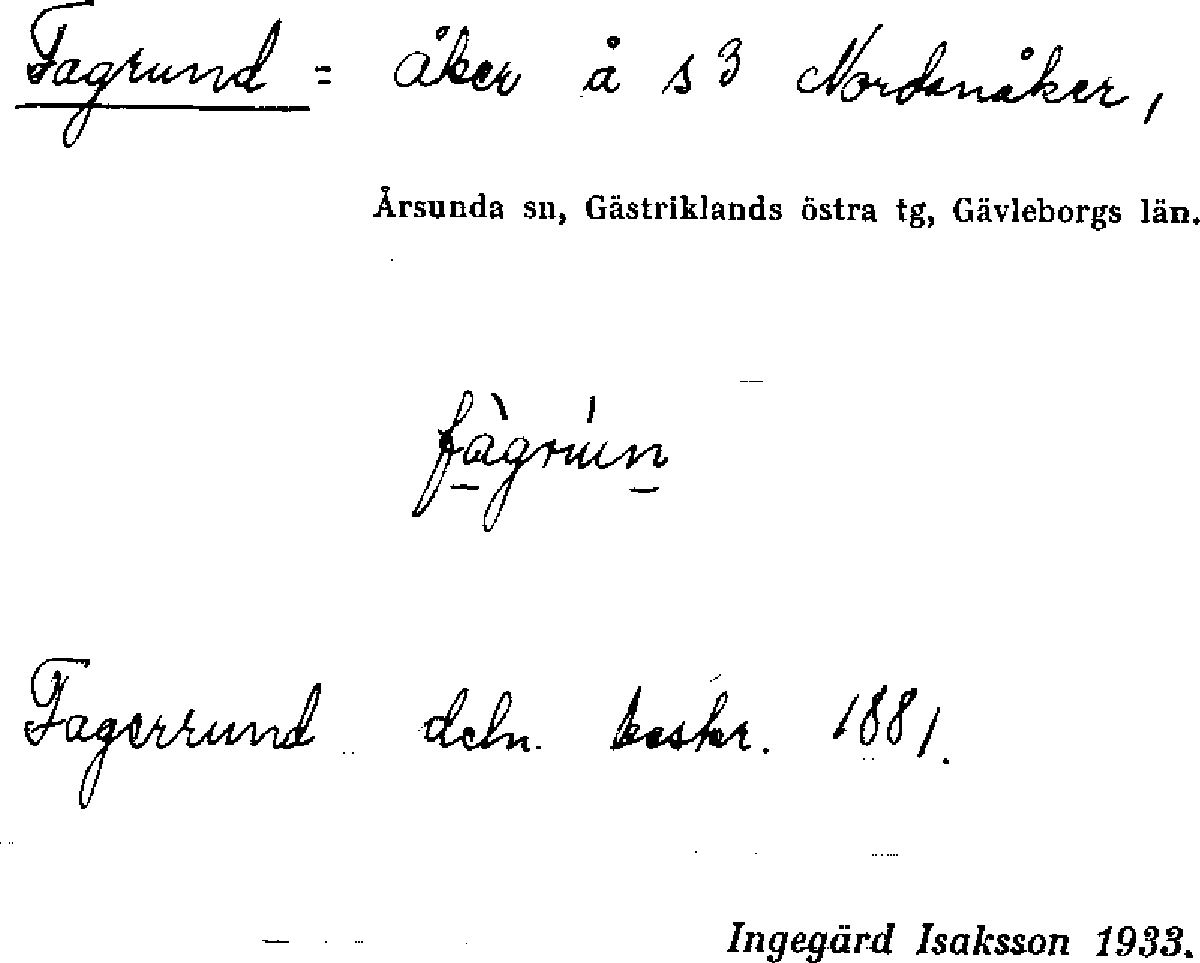 Fagrund = åker å s 3 Nordanåker,
Årsunda sn, Gästriklands östra tg, Gävleborgs län.
fàgrún
Fagerrund deln. beskr. 1881.
Ingegärd Isaksson 1933.